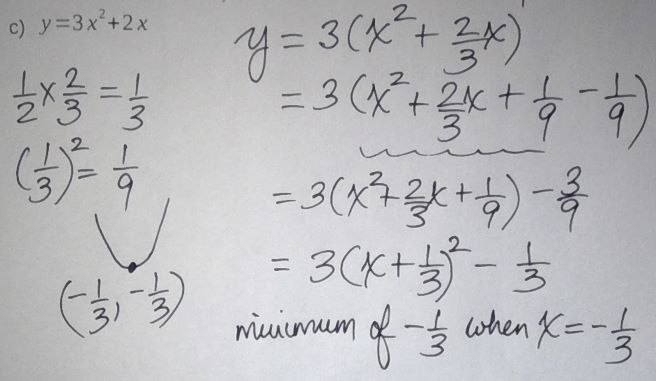 c) y=3x²+2x
½ × ⅔ = ⅓
(⅓)² = 1/9
(-⅓, -⅓)
y = 3(x² + ⅔x)
= 3(x² + ⅔x + 1/9 - 1/9)
= 3(x² + ⅔x + 1/9) - 3/9
= 3(x + ⅓)² - ⅓
minimum of -⅓ when x = -⅓